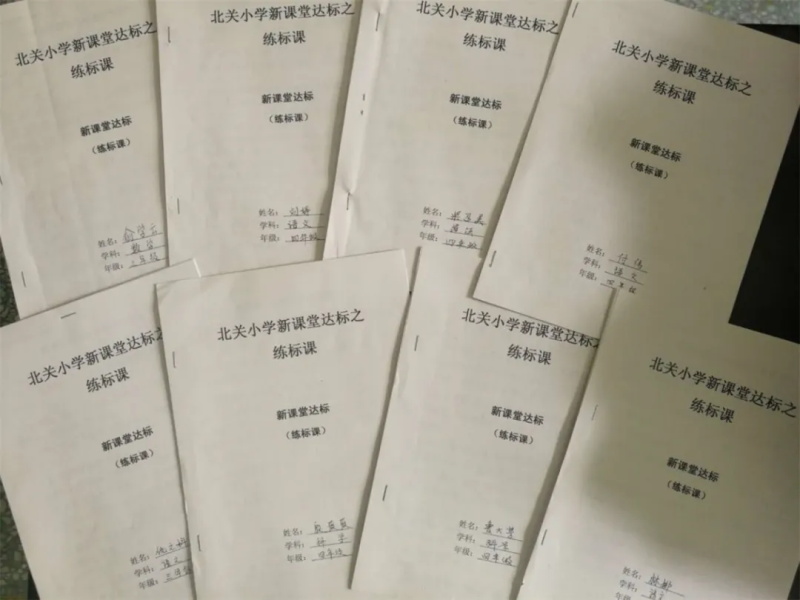 北关小学新课堂达标之
练标课
新课堂达标
(练标课)
姓名:
学科: 数学
年级: 二年级
北关小学新课堂达标之
练标课
新课堂达标
(练标课)
姓名: 刘婷
学科: 语文
年级: 四年级
北关小学新课堂达标之
练标课
新课堂达标
(练标课)
姓名:
学科: 英语
年级: 四年级
北关小学新课堂达标之
练标课
新课堂达标
(练标课)
姓名: 付伟
学科: 语文
年级: 四年级
北关小学新课堂达标之
练标课
新课堂达标
(练标课)
姓名:
学科: 语文
年级: 三年级
北关小学新课堂达标之
练标课
新课堂达标
(练标课)
姓名:
学科: 科学
年级: 四年级
北关小学新课堂达标之
练标课
新课堂达标
(练标课)
姓名:
学科: 科学
年级: 四年级
北关小学新课堂达标之
练标课
新课堂达标
(练标课)
姓名:
学科:
年级: